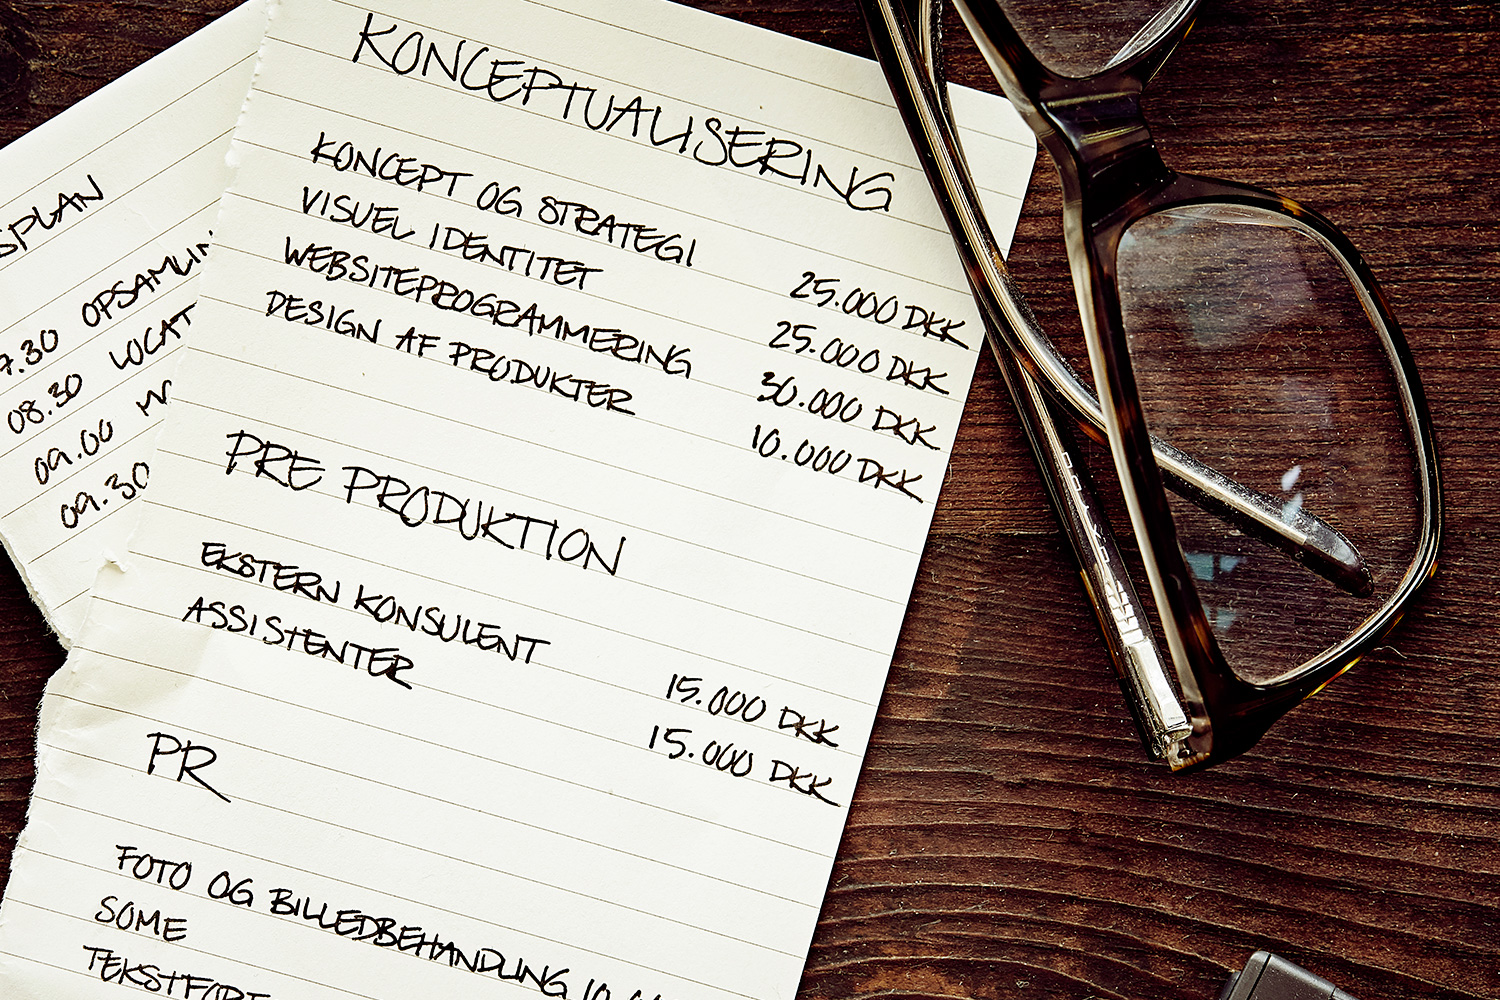 KONCEPTUALISERING
KONCEPT OG STRATEGI 25.000 DKK
VISUEL IDENTITET 25.000 DKK
WEBSITEPROGRAMMERING 30.000 DKK
DESIGN AF PRODUKTER 10.000 DKK
PRE PRODUKTION
EKSTERN KONSULENT 15.000 DKK
ASSISTENTER 15.000 DKK
PR
FOTO OG BILLEDBEHANDLING
SOME
SPLAN
7.30 OPSAMLIN
08.30 LOCAT
09.00
09.30